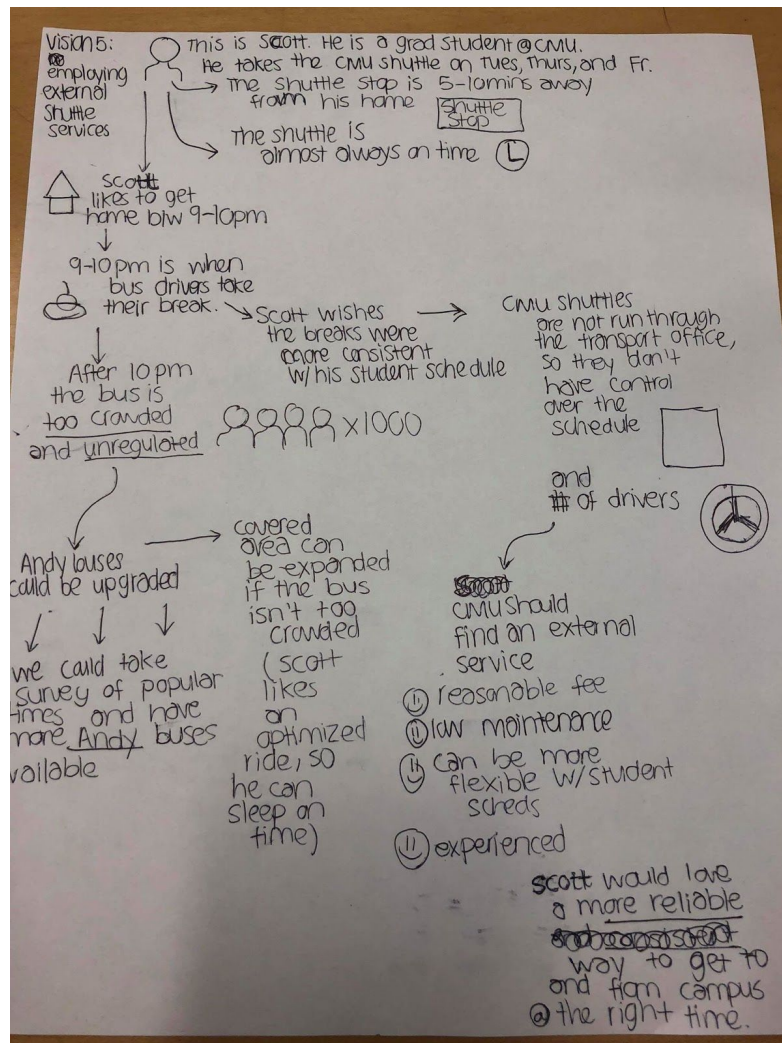 Vision 5:
employing
external
Shuttle
services
This is Scott. He is a grad student @ CMU.
He takes the CMU shuttle on Tues, Thurs, and Fr.
The shuttle stop is 5-10mins away
from his home
Shuttle
Stop
The shuttle is
almost always on time
scott
likes to get
home b/w 9-10pm
9-10pm is when
bus drivers take
their break.
Scott wishes
the breaks were
more consistent
w/his student schedule
CMU shuttles
are not run through
the transport office,
so they don't
have control
over the
schedule
and
# of drivers
After 10pm
the bus is
too crowded
and unregulated
x1000
Andy buses
could be upgraded
we could take
survey of popular
times and have
more Andy buses
vailable
covered
area can
be expanded
if the bus
isn't too
crowded
(scott
likes
an
optimized
ride, so
he can
sleep on
time)
CMU should
find an external
service
reasonable fee
low maintenance
can be more
flexible w/student
scheds
experienced
scott would love
a more reliable
way to get to
and from campus
@ the right time.